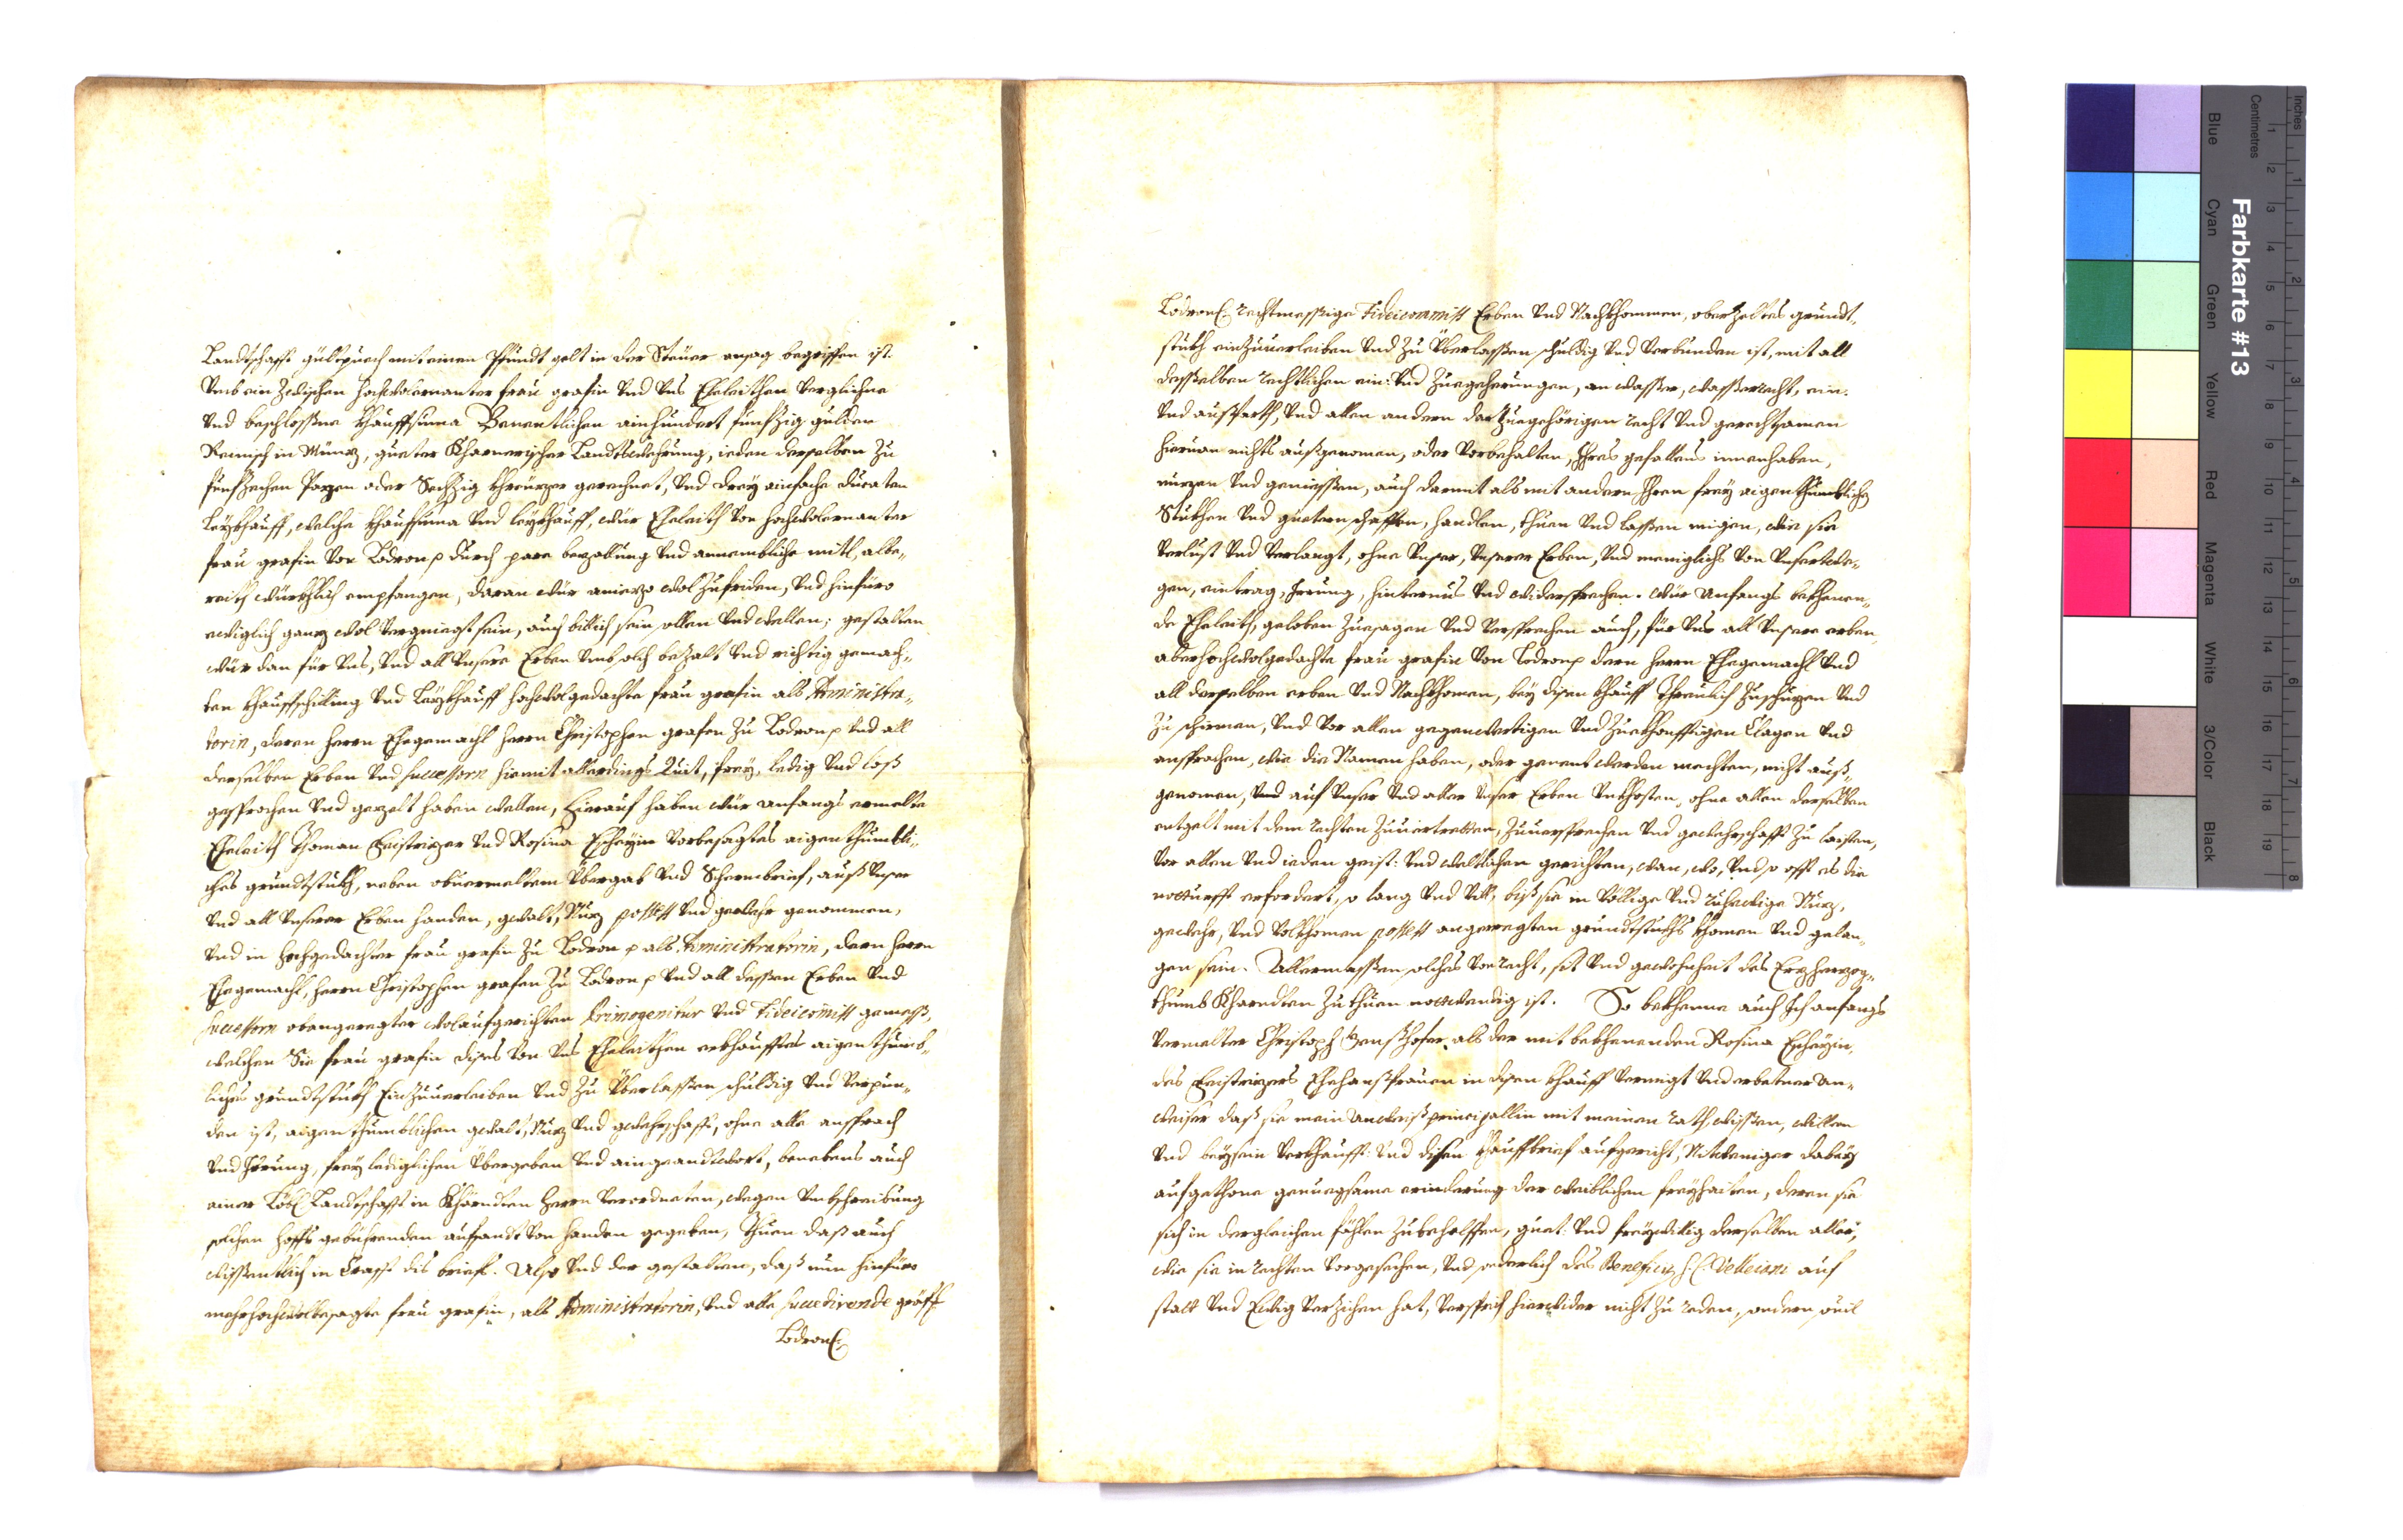 Landtschafft gültpuech mit einen Pfundt gelt in der Steuer ansag begriffen ist.
Vmb ein zwischen hochwolernanter frau gräfin vnd vns Eheleithen verglichne
vnd beschloßne khauffsuma Benentlichen ainhundert funfzig gulden
Reinisch in Münz, gueter Kharnerischer Landtswehrung, ieden derselben zu
funfzechen Pazen oder Sechzig khreuzer gerechnet, vnd drey ainfache Ducaten
Leykhauff, welche khauffsuma vnd leykhauff, wür Eheleith von hochwolernanter
frau gräfin von Lodron p durch pare bezallung vnd annembliche mitl, albe„
reith würkhlich empfangen, daran wür aniezo wol zufriden, vnd hinfüro
ewiglich ganz wol vergniegt sein, auch billich sein sollen vnd wellen; gestalten
wür dan für vns, vnd all vnsere Erben vmb solch bezalt vnd richtig gemach„
ten khauffschilling vnd leykhauff hochwolgedachte frau gräfin als Administra„
torin, deren herrn Ehegemachl herrn Christophen grafen zu Lodron p vnd all
derselben Erben vnd successorn hiemit allerdings Quit, frey, ledig vnd loß
gesprochen vnd gezelt haben wellen, hierauf haben wür anfangs ermelte
Eheleith Thoman Feistrizer vnd Rosina vorbesagtes aigenthumbli„
ches grundtstukh, neben obuermeltem übergab vnd Schermbrief, auß vnser
vnd all vnserer Erben handen, gwalt, Nuz possess vnd gwehr genommen,
vnd in hochgedachter frau gräfin zu Lodron p als Administratorin, dern herrn
Ehegemachl, herrn Christophen grafen zu Lodron p vnd all dessen Erben vnd
successorn obangeregter wolaufgerichten Primogenitur vnd Fideicomiss gemess,
welchen Sie frau gräfin dises von vns Eheleithen erkhauffte aigenthumb„
liches grundtstukh Einzuuerleiben vnd zu überlassen schuldig vnd verpun„
den ist, aigenthumblichen gwalt, Nuz vnd gwehrschafft, ohne alle ansprach
vnd Jrrung, frey lediglichen übergeben vnd aingeandtwort, benebens auch
einer Löbl: Landtschafft in Khärndten herrn Verordneten, wegen vmbschreibung
solchen hoffs gebührenden aufsandt von handen gegeben, Thuen daß auch
wissentlich in Crafft dis briefs. Also vnd der gestalten, daß nun hinfüro
mehrhochwolbesagte frau gräfin, als Administratorin, vnd alle succedirende gräff
Lodron:
Lodron: rechtmessige Fideicommiss Erben vnd Nachkhommen, oberzeltes grundt„
stukh einzuuerleiben vnd zu überlassen schuldig vnd verbunden ist, mit all
desselben rechtlichen ein: vnd zuegehörungen, an wasser, wasserrecht, ein-
vnd außfarth, vnd allen andern darzuegehörigen recht vnd gerechtsamen
hieruon nichts außgenomen, oder vorbehalten, Ihres gefallens innenhaben,
nuzen vnd geniessen, auch darmit als mit andern Ihren frey aigenthumblichen
Stukhen vnd güetern schaffen, handlen, thuen vnd lassen mügen, wie sie
verlust vnd verlangt, ohne vnser, vnserer Erben, vnd meniglichs von vnsertwe„
gen, eintrag, Jrrung, hinternus vnd widersprechen. Wür anfangs bekhenen„
de Eheleith, geloben zuesagen vnd versprechen auch, für vns all vnsere erben,
aberhochwolgedachte frau gräfin von Lodron p dern herrn Ehegemachl vnd
all derselben erben vnd Nachkhomen, bey disen khauff threulich zuschuzen vnd
zu schirmen, vnd vor allen gegenwertigen vnd zuekhonfftigen Clagen vnd
ansprachen, wie die Namen haben, oder genent werden mechten, nicht auß„
genomen, vnd auf vnser vnd aller vnser Erben vnkhosten, ohne allen derselben
entgelt mit dem rechten zuuertretten, zuuersprechen vnd gwehrschafft zu laisten,
vor allen vnd ieden geist: vnd weltlichen gerichten, wan, wo, vnd so offt es die
notturfft erfordert, so lang vnd vill, biß sie in völlige vnd ruhewige Nuz,
gwehr, vnd volkhomen possess angeregten grundtstukhs khomen vnd gelan„
gen sein. Allermassen solches von recht, sit vnd gewohnheit des Erzherzog„
thumb Kharndten zu thuen notwendig ist. So bekhenne auch Ich anfangs
vermelter Christoph als der mit bekhenenden Rosina
des Feistrizers Ehehaußfrauen in disen khauff vermigt vnd erbetner An„
weiser daß sie mein Anweiß principallin mit meinen rath, wissen, willen
vnd beysein verkhaufft: vnd disen khauffbrief aufgericht, Nitweniger dabey
aufgethone genuegsame erinderung der weiblichen freyhaiten, deren sie
sich in dergleichen fählen zubehelffen, guet: vnd freywillig derselben aller,
wie sie in rechten vorgesechen, vnd sonderlich des Beneficij S: C: Velleiani auf
statt vnd Ewig verzichen hat, versprich hierwider nicht zu reden, sondern souil